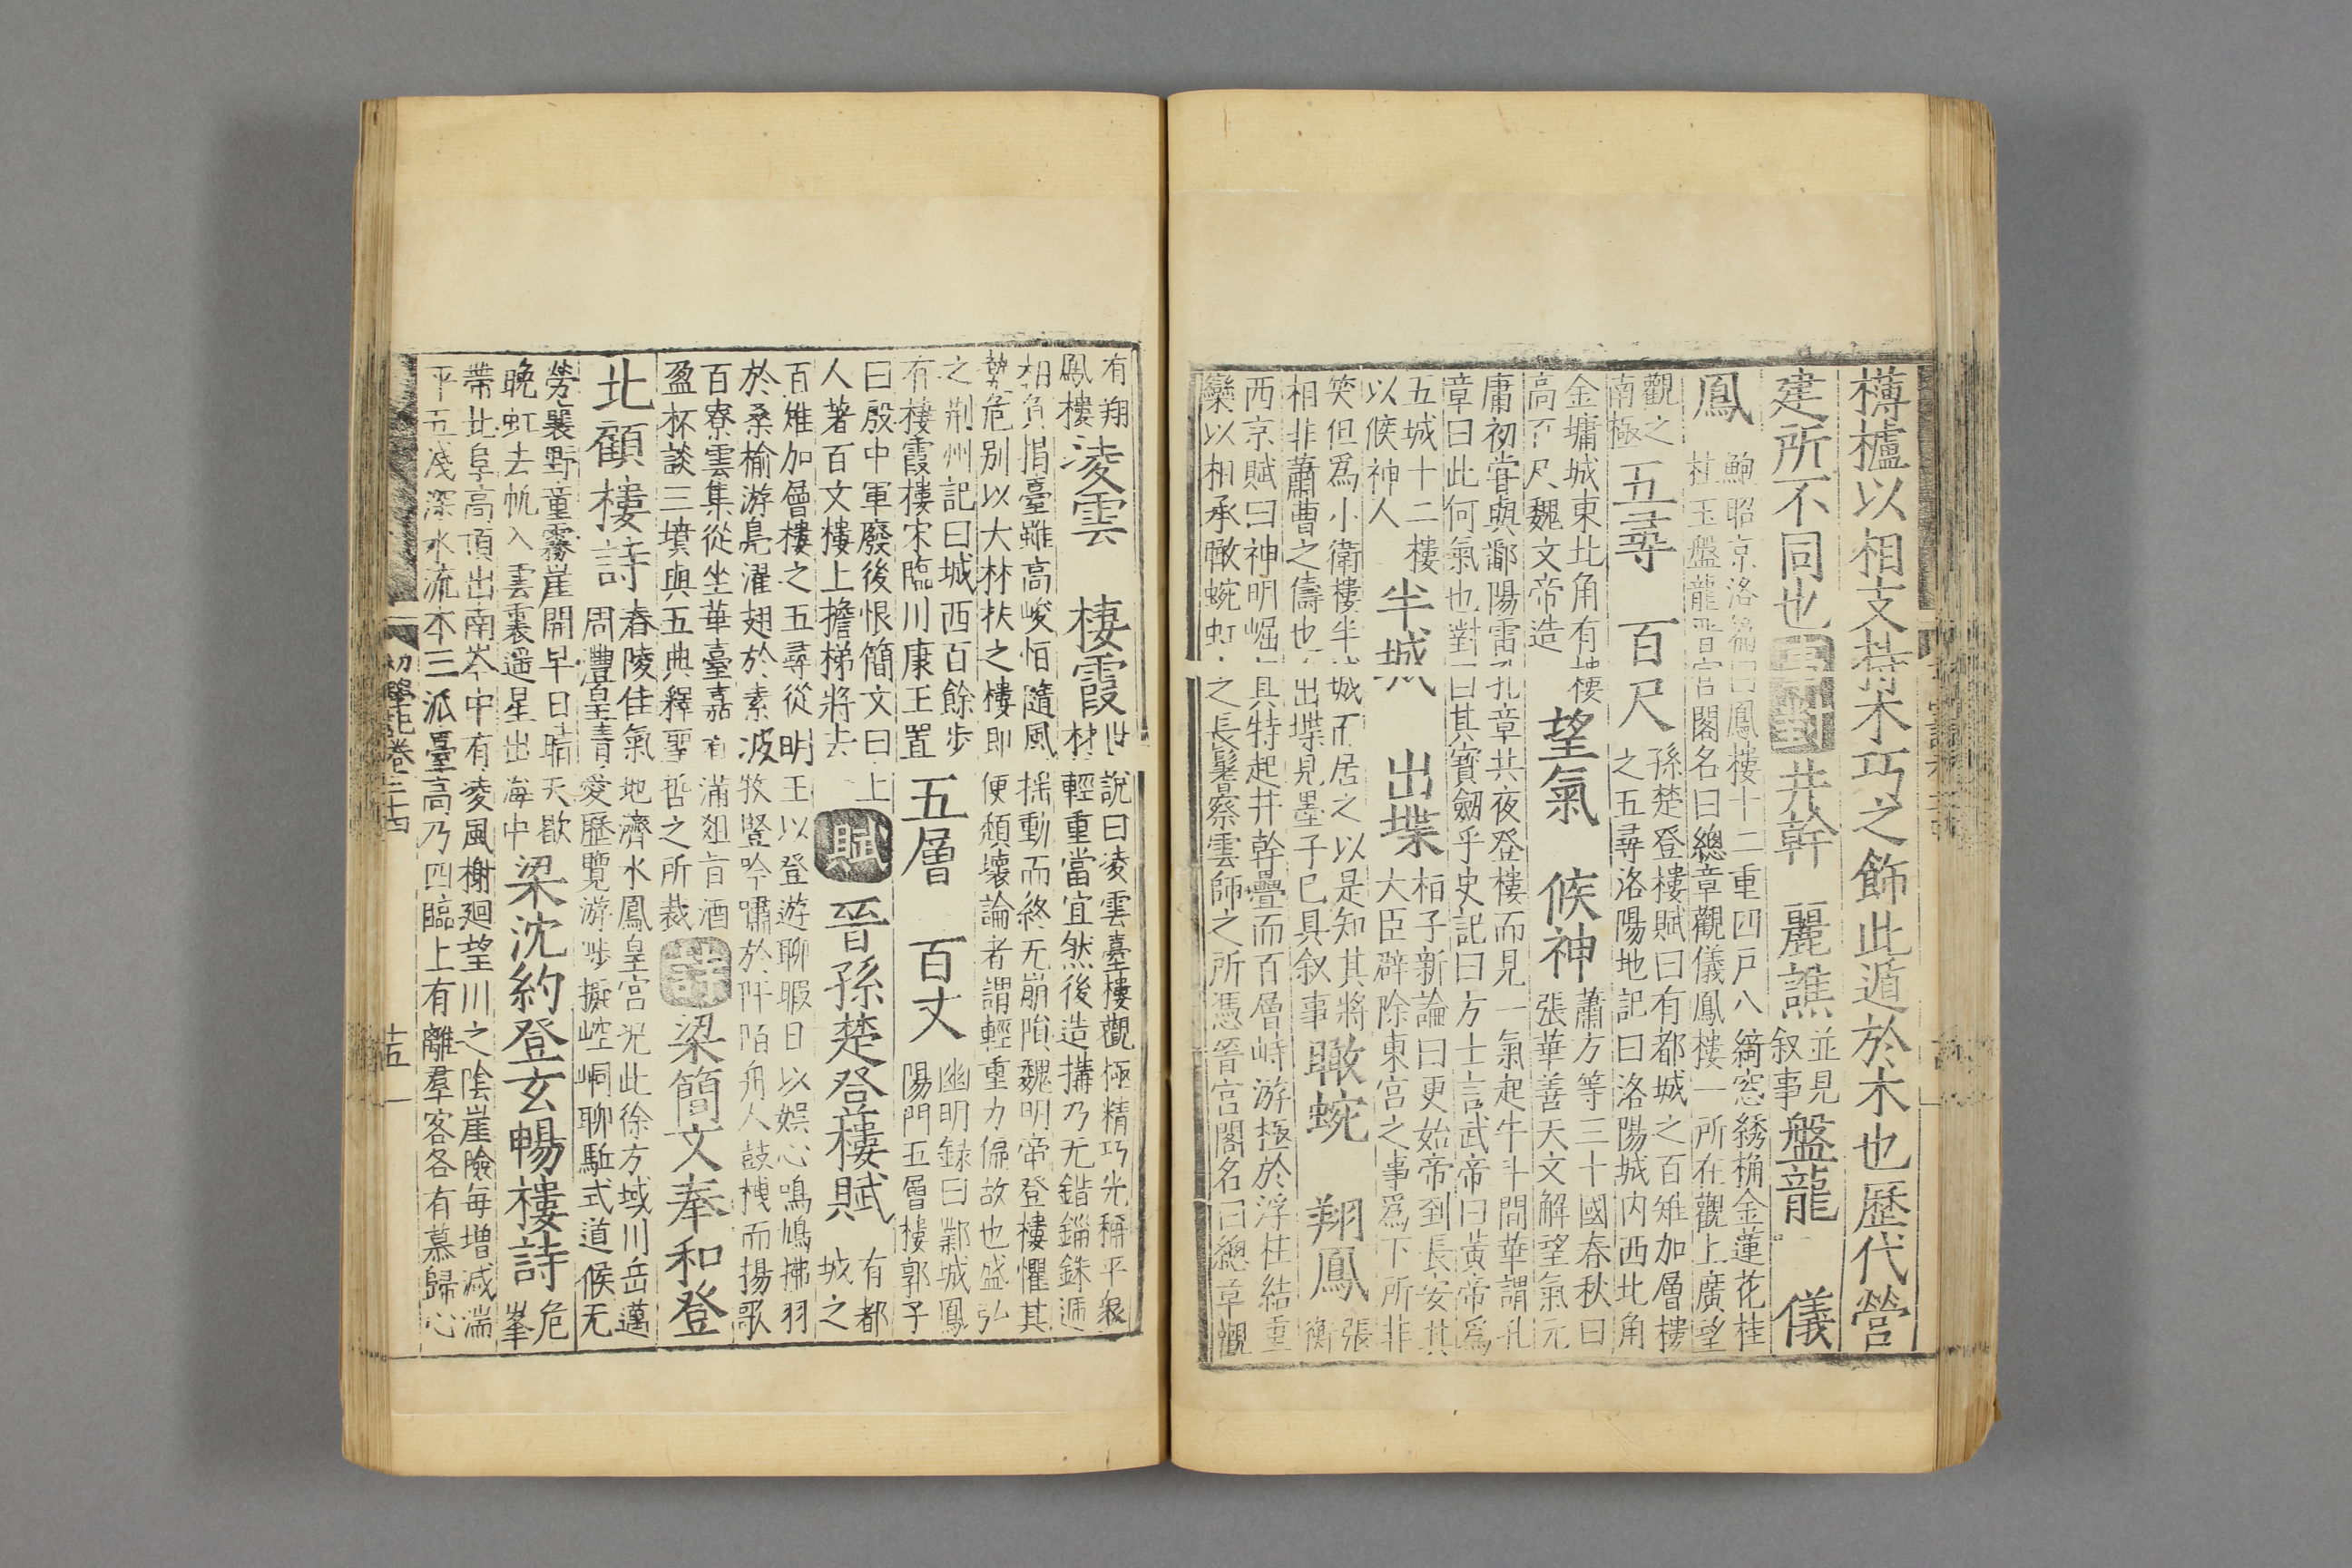 欂櫨以相支持木巧之飾此遁於木也歷代營
建所不同也事對井幹 麗譙並見叙事盤龍 儀
鳳鮑昭京洛篇曰鳳樓十二重四戶八綺窓綉桷金蓮花桂
柱玉盤龍晉宮閣名曰總章觀儀鳳樓一所在觀上廣望
觀之南極五尋 百尺孫楚登樓賦曰有都城之百雉加層樓
之五尋洛陽地記曰洛陽城内西北角
金墉城東北角有樓高百尺魏文帝造望氣 候神蕭方等三十國春秋曰
張華善天文解望氣元
庸初嘗與鄱陽雷孔章共夜登樓而見一氣起牛斗間華謂孔
章曰此何氣也對曰其寳劔乎史記曰方士言武帝曰黃帝爲
五城十二樓以候神人半城 出堞桓子新論曰更始帝到長安其
大臣辟除東宮之事爲下所非
笑但爲小衛樓半城而居之以是知其將
相非蕭曹之儔也出堞見墨子已具叙事瞰蜿 翔鳳張衡
西京賦曰神明崛其特起井幹疊而百層峙游極於浮柱結重
欒以相承瞰蜿虹之長鬐察雲師之所憑晉宮閣名曰總章觀
有翔鳳樓淩雲 棲霞世說曰凌雲臺樓觀極精巧先稱平衆
材輕重當宜然後造搆乃无錙銖遞
相負揭臺雖高峻恒隨風揺動而終无崩隕魏明帝登樓懼其
勢危別以大材扶之樓即便頽壞論者謂輕重力偏故也盛弘
之荆州記曰城西百餘步有棲霞樓宋臨川康王置五層 百丈幽明録曰鄴城鳳
陽門五層樓郭子
曰殷中軍廢後恨簡文曰上
人著百文樓上擔梯將去賦晉孫楚登樓賦有都城之
百雉加層樓之五尋從明王以登遊聊暇日以娯心鳴鳩拂羽
於桑榆游鳧濯翅於素波牧豎吟嘯於阡陌舟人鼓棹而揚歌
百寮雲集從坐華臺嘉肴滿俎旨酒
盈杯談三墳與五典釋聖哲之所裁詩梁簡文奉和登
北顧樓詩春陵佳氣地濟水鳳皇宮况此徐方域川岳邁
周灃皇情愛歷覽游陟擬崆峒聊駈式道候无
勞襄野童霧崖開早日晴天歇
晚虹去帆入雲裏遥星出海中梁沈約登玄暢樓詩危峯
帶北阜高頂出南岑中有凌風榭廻望川之隂崖險每増减湍
平互淺深水流本三派臺高乃四臨上有離羣客客有慕歸心
初學記卷二十四 十五